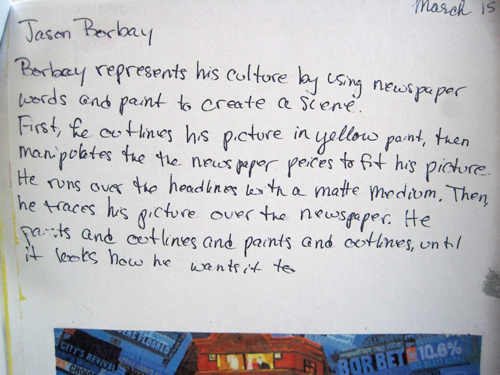 March 15
Jason Borbay
Borbay represents his culture by using newspaper
words and paint to create a scene.
First, he outlines his picture in yellow paint, then
manipulates the the newspaper peices to fit his picture.
He runs over the headlines with a matte medium. Then,
he traces his picture over the newspaper. He
paints and outlines and paints and outlines, until
it looks how he wants it to
CITY'S REVIVAL
BOR BET 10.6%